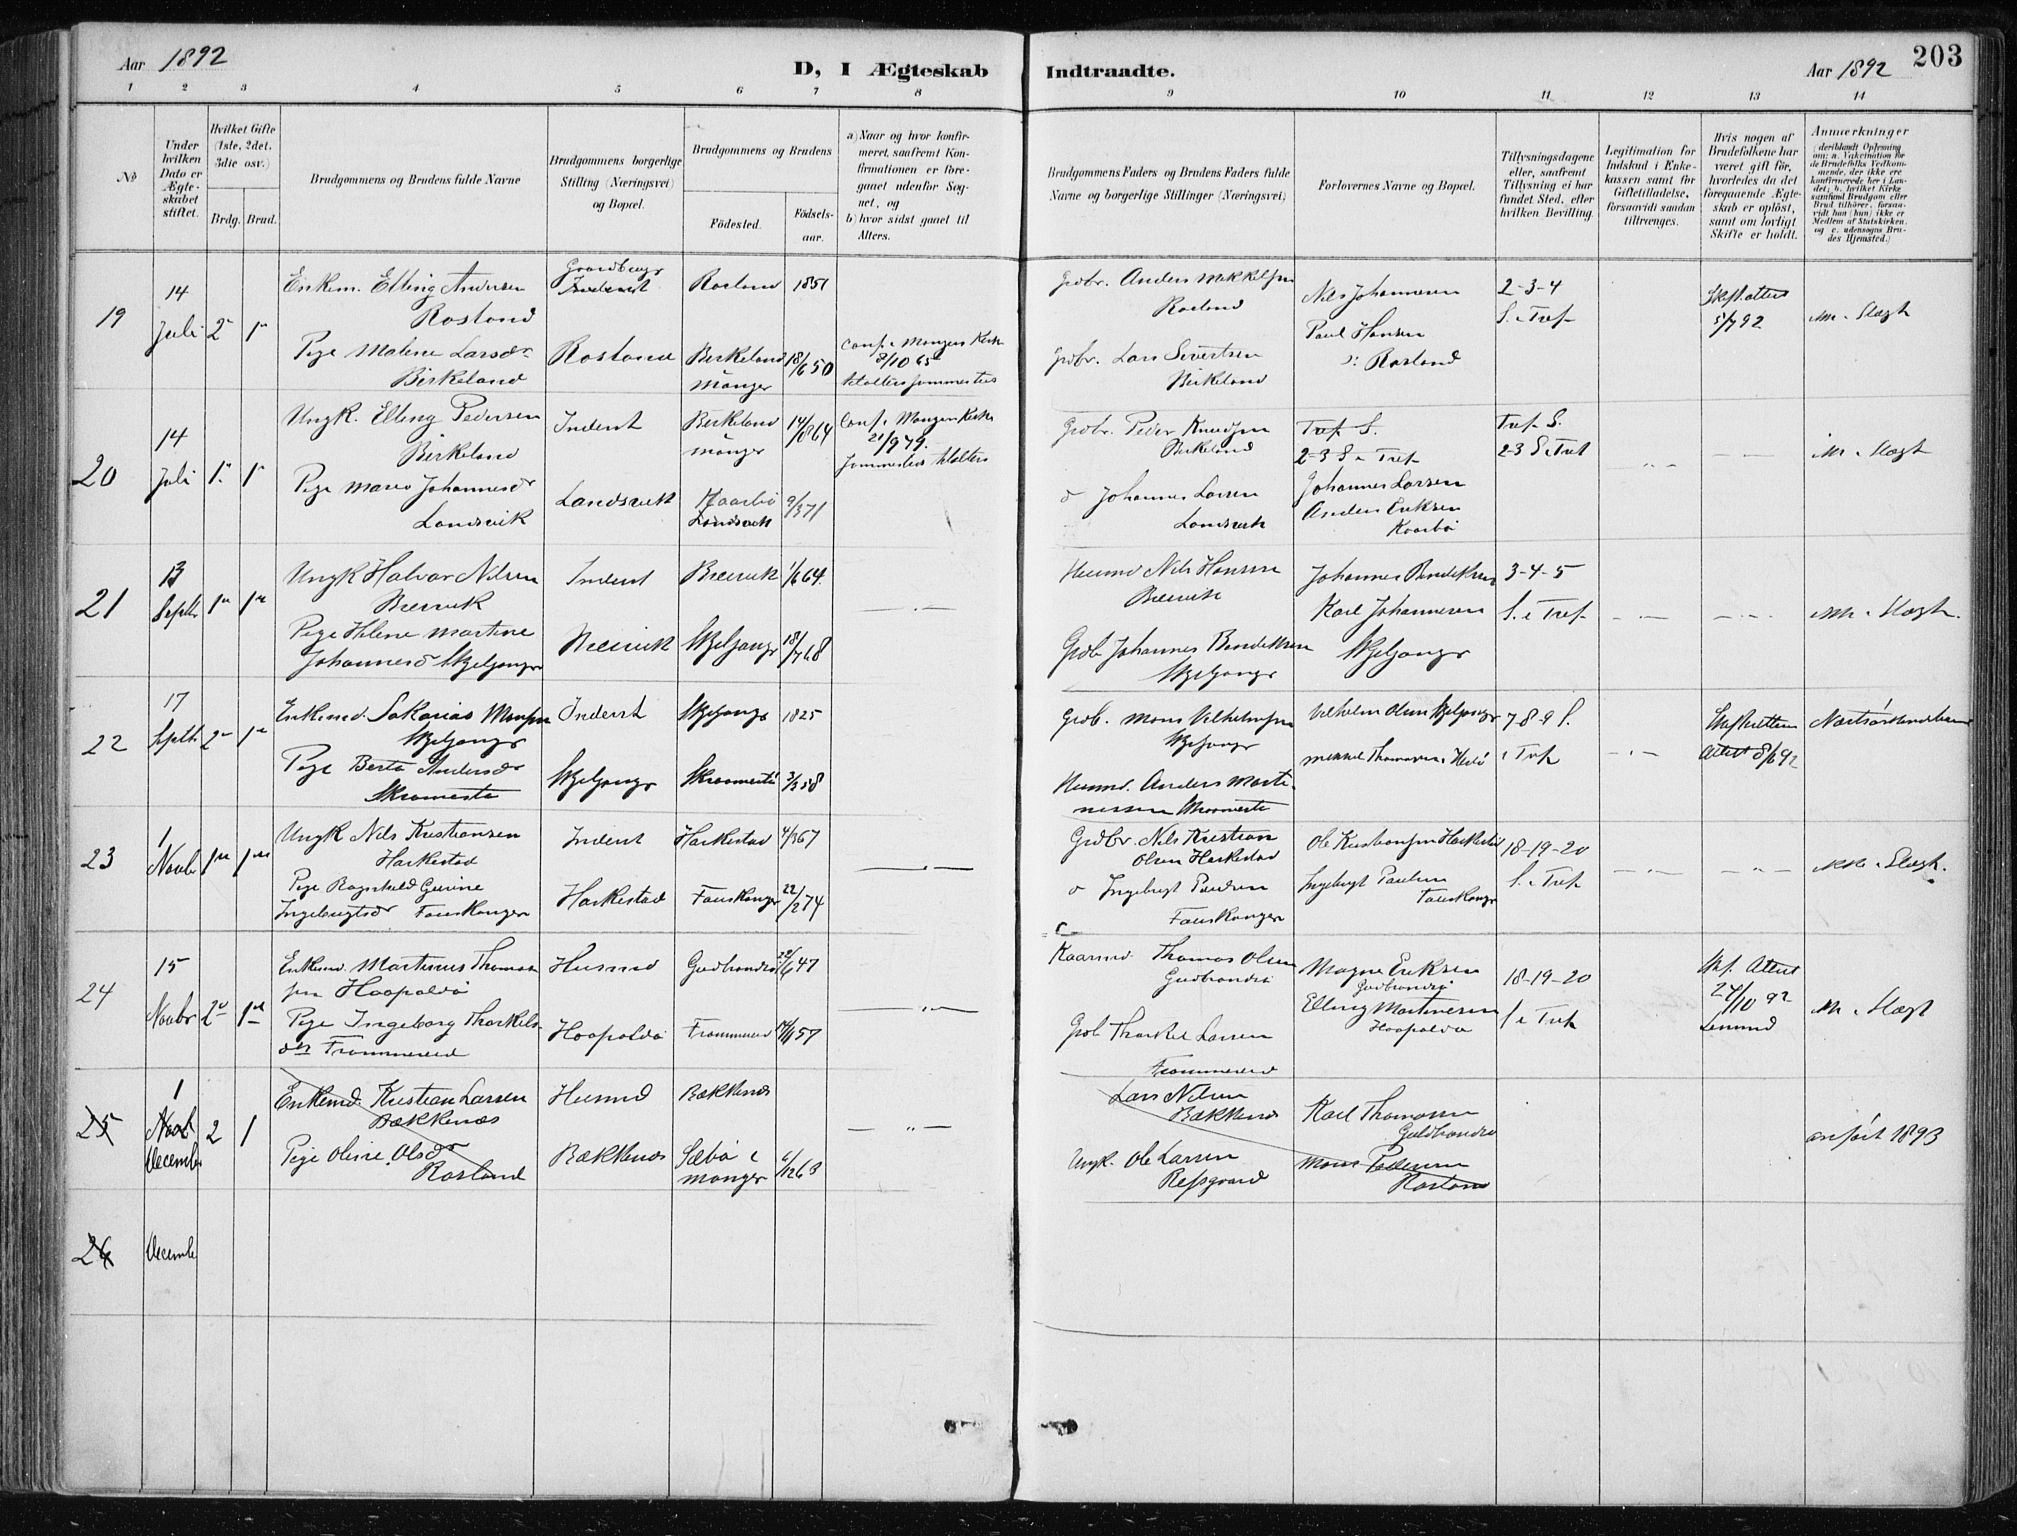 Aar 1892
D, I Ægteskab
Indtraadte.
Aar 1892
203
1 2 3 4 5 6 7 8 9 10 11 12 13 14
No
Under hvilken Dato er Ægteskabet stiftet.
Hvilket Gifte (1ste, 2det, 3die osv.)
Brdg. Brud.
Brudgommens og Brudens fulde Navne
Brudgommens borgerlige Stilling (Næringsvei) og Bopæl.
Brudgommens og Brudens
Fødested.
Fødselsaar.
a) Naar og hvor konfirmeret, saafremt Konfirmationen er foregaaet udenfor Sognet, og
b) hvor sidst gaaet til Alters.
Brudgommens Faders og Brudens Faders fulde Navne og borgerlige Stillinger (Næringsvei)
Forlovernes Navne og Bopæl.
Tillysningsdagene eller, saafremt Tillysning ei har fundet Sted, efter hvilken Bevilling.
Legitimation for Indskud i Enkekassen samt for Giftetilladelse, forsaavidt saadan tiltrænges.
Hvis nogen af Brudefolkene har været gift før, hvorledes da det foregaaende Ægteskab er opløst, samt om lovligt Skifte er holdt.
Anmærkninger (deriblandt Oplysning om: a. Vakcination for de Brudefolks Vedkommende, der ikke ere konfirmerede her i Landet; b. hvilket Kirkesamfund Brudgom eller Brud tilhører, forsaavidt han (hun) ikke er Medlem af Statskirken. og c. udensogns Brudes Hjemsted.)
19
14 Juli
Enkem. Elling Andersen
Rosland
Pige Malene Larsdr
Birkeland
Gaardbruger
Rosland
Rosland 1851
Birkeland Manger 18/6 50
Conf. i Manger Kirke 8/10 65
Grdbr. Anders Mikkelsen
Rosland
Grdbr. Lars Sivertsen
Birkeland
Nils Johannesen
Paul Hansen
Rosland
2-3-4
S. e Tref.
5/7 92
ikke i Slægt
20
14 Juli
Ungk. Elling Pedersen
Birkeland
Pige Maria Johannesdr
Landsvik
Inderst
Landsvik
Birkeland Manger 14/8 64
Kaarbø Landsvik 9/3 71
Conf. i Manger Kirke
21/9 79.
Grdbr. Peder Knudsen
Birkeland
Johannes Larsen
Landsvik
Tref S.
2-3 S e Tref
Johannes Larsen
Anders Eriksen
Kaarbø
Tref S.
2-3 S e Tref
ikke i Slægt
21
13 Septbr
Ungk Halvor Nilsen
Breivik
Pige Helene Martine
Johannesdr Skjeljanger
Inderst
Breivik
Breivik 1/6 64
Skjeljanger 18/7 68
Husmd Nils Hansen
Breivik
Grdb Johannes Bendiksen
Skjeljanger
Johannes Bendiksen
Karl Johannesen
Skjeljanger
3-4-5
S. e Tref.
ikke i Slægt.
22
17 Septbr
Enkemd. Sakarias Monsen
Skjeljanger
Pige Berta Andersdr
Skrameste
Inderst
Skjeljanger
Skjeljanger 1825
Skrameste 3/3 58
Grdb. Mons Vilhelmsen
Skjeljanger
Husmd. Anders Martinessen Skrameste
Vilhelm Olsen Skjeljanger
Mikkel Thomassen Herlø
7-8-9 S.
e Tref
Skifterettens
Attest 8/6 92
23
1 Novbr
Ungk Nils Kristiansen
Harkestad
Pige Ragnhild Gurine
Ingebrigtsdr Fauskanger
Inderst
Harkestad
Harkestad 4/3 67
Fauskanger 22/2 74
Grdbr Nils Kristian
Olsen Harkestad
Ingebrigt Paulsen
Fauskanger
Ole Kristiansen Harkestad
Ingebrigt Paulsen
Fauskanger
18-19-20
S. e Tref
ikke i Slægt.
24
15 Novbr
Enkemd. Martinus Thomassen Hoopaldø
Pige Ingeborg Thorkelsdr Frommereid
Husmd
Hoopaldø
Gudbrandsø 22/6 47
Frommereid 57
Kaarmd. Thomas Olsen
Gudbrandsø
Grdb Thorkel Larsen
Frommereid
Magne Eriksen
Gudbrandsø
Elling Martinesen
Hoopaldø
18-19-20
S e Tref
Skf. Attest
27/10 92
Lensmd
ikke i Slægt
25
1 Novb December
2 1
Enkemd. Kristian Larsen
Bækkenæs
Pige Oline Olsdr
Rosland
Husmd
Bækkenæs
Bækkenæs
Sæbø i Manger 6/12 63
Lars Nilsen
Bækkenæs
Ungk. Ole Larsen
Refsgaard
Karl Thomassen
Guldbrandsø
Mons Pedersen
Rosland
anført 1893
26
Decemb